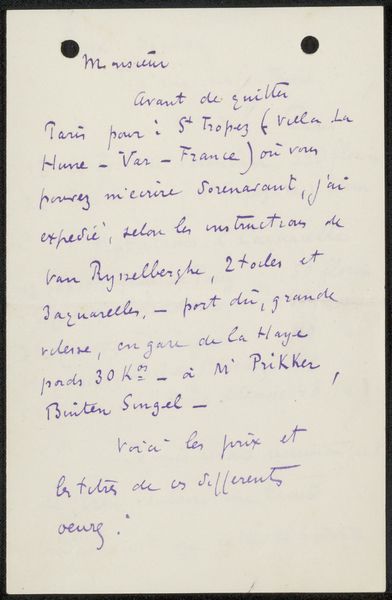 Monsieur
Avant de quitter
Paris pour à St Tropez (Villa La
Hune - Var - France) où vous
pouvez m'écrire dorenavant, j'ai
expedié, selon les instructions de
Van Rysselberghe, 2 toiles et
3 aquarelles. - port dû, grande
vitesse, en gare de la Haye
poids 30 Kos - à Mr Prikker,
Binten Singel -
Voici les prix et
les titres de ces differents
œuvres: